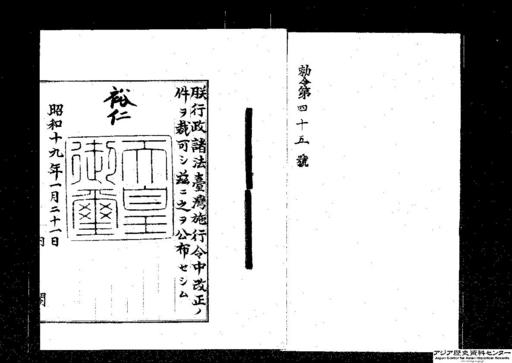 勅令第四十五號
朕行政諸法臺灣施行令中改正ノ
件ヲ裁可シ茲ニ之ヲ公布セシム
裕仁
天皇
御璽
昭和十九年一月二十一日
内閣
アジア歴史資料センター
Japan Center for Asian Historical Records